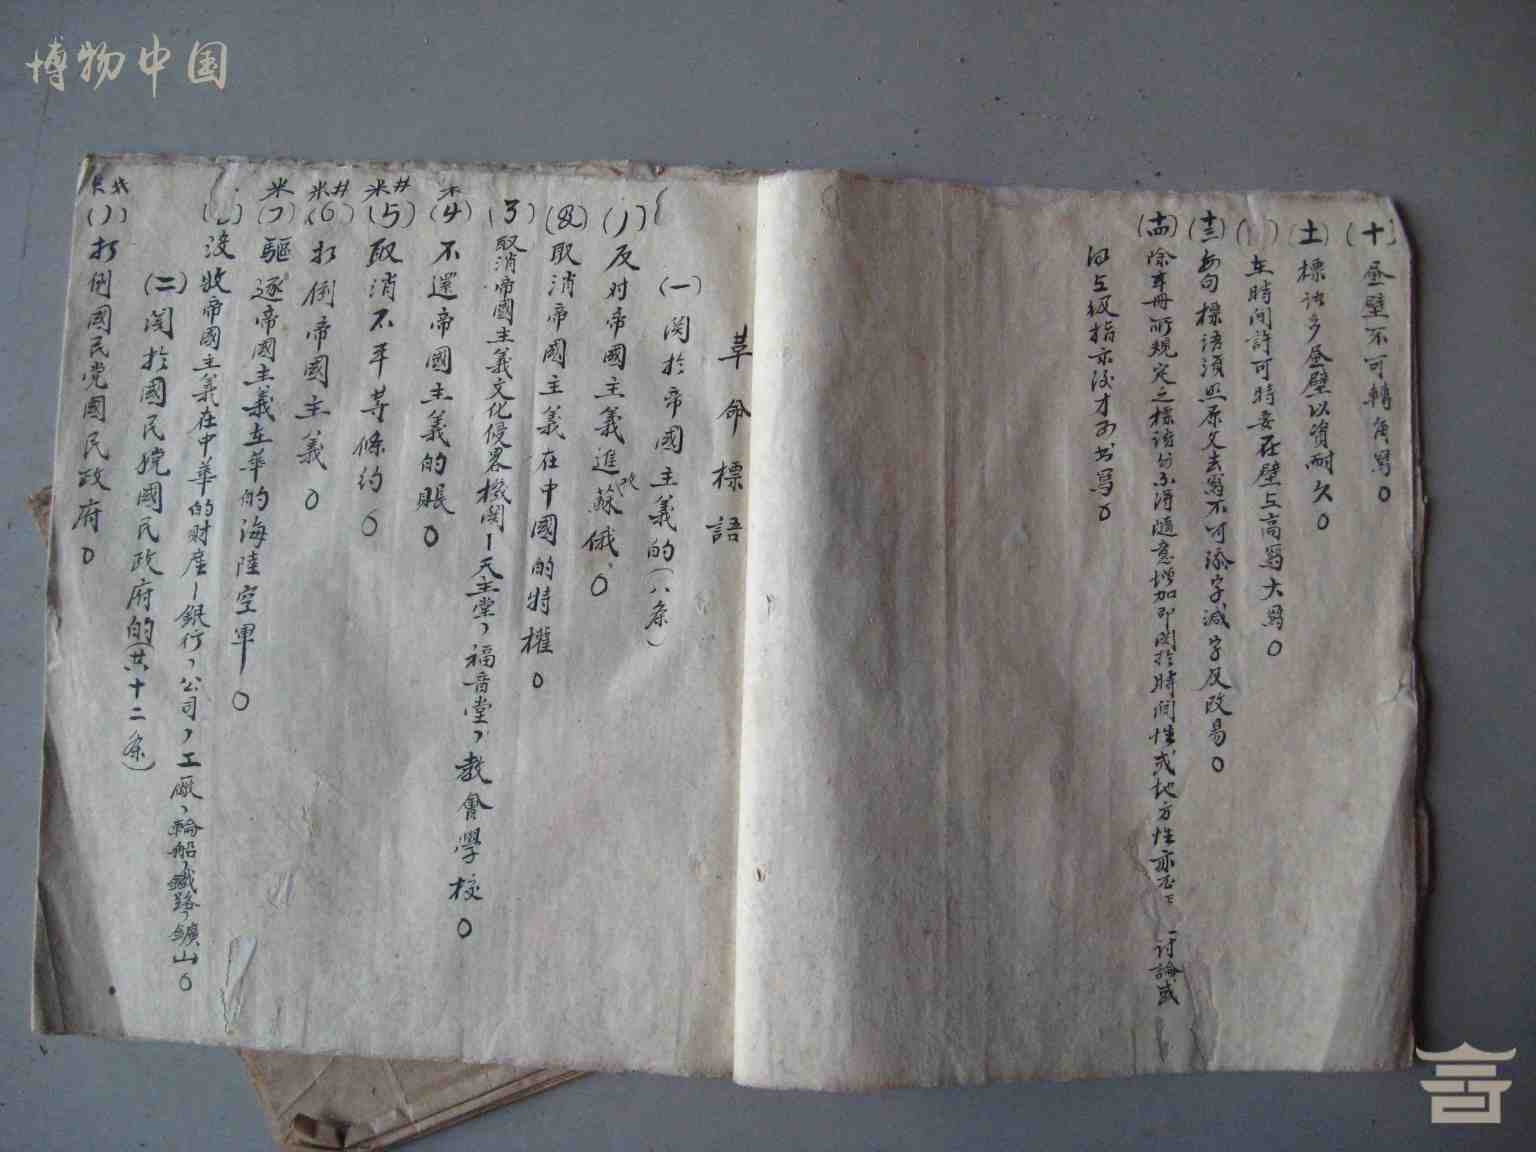 博物中国
(十)昼壁不可轉角寫。
(土)標語多昼壁以資耐久。
在時间許可時要在壁上高寫大寫。
(十三)每句標語須照原文去寫不可添字減字及改易。
(十四)除本冊所規定之標語外不得隨意增加即関於時间性或地方性亦 討論或
級指示後才可书寫。
革命標語
(一)関於帝國主義的(八条)
(1)反对帝國主義進攻蘇俄。
(2)取消帝國主義在中國的特權。
(3)取消帝國主義文化侵畧機関—天主堂,福音堂,教會學校。
(4)不還帝國主義的賬。
(5)取消不平等條約。
(6)打倒帝國主義。
(7)驅逐帝國主義在華的海陸空軍。
沒收帝國主義在中華的財産—銀行,公司,工廠,輪船,鐵路,鑛山。
(二)関於國民党國民政府的(共十二条)
(1)打倒國民党國民政府。